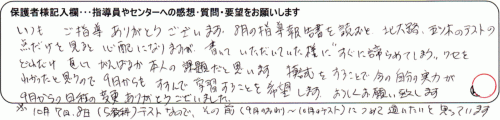 保護者様記入欄･･･指導員やセンターへの感想・質問・要望をお願いします
いつも ご指導 ありがとうございます。8月の指導報告書を読むと 北大路 のテストの
点だけを見ると 心配になりますが、書いていただいていた様に"すぐに諦められてしまう。"クセを
どれだけ 直していかれるかが本人の課題だと思います。模試をすることで 今の自分の実力が
わかったと思うので 9月からも すすんで 学習することを希望します。よろしくお願い致します
9月からの日程の変更 ありがとうございました。
※10月7日.8日(5教科)テストなので、その前(9月のおわり~10月のテスト)につめて通いたいと思っています